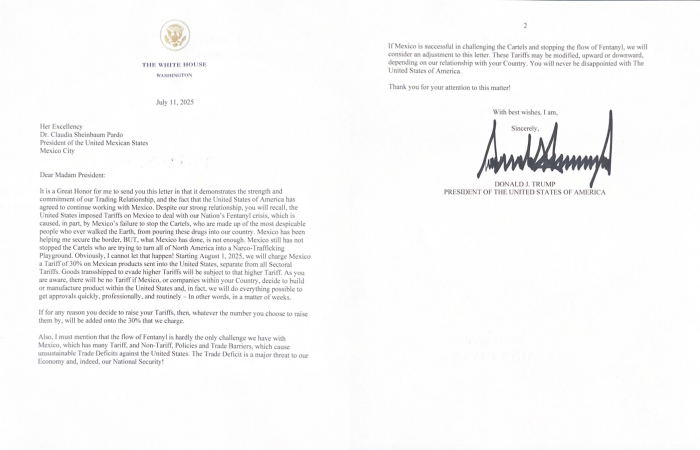 THE WHITE HOUSE
WASHINGTON
July 11, 2025
Her Excellency
Dr. Claudia Sheinbaum Pardo
President of the United Mexican States
Mexico City
Dear Madam President:
It is a Great Honor for me to send you this letter in that it demonstrates the strength and
commitment of our Trading Relationship, and the fact that the United States of America has
agreed to continue working with Mexico. Despite our strong relationship, you will recall, the
United States imposed Tariffs on Mexico to deal with our Nation's Fentanyl crisis, which is
caused, in part, by Mexico's failure to stop the Cartels, who are made up of the most despicable
people who ever walked the Earth, from pouring these drugs into our country. Mexico has been
helping me secure the border, BUT, what Mexico has done, is not enough. Mexico still has not
stopped the Cartels who are trying to turn all of North America into a Narco-Trafficking
Playground. Obviously, I cannot let that happen! Starting August 1, 2025, we will charge Mexico
a Tariff of 30% on Mexican products sent into the United States, separate from all Sectoral
Tariffs. Goods transshipped to evade higher Tariffs will be subject to that higher Tariff. As you
are aware, there will be no Tariff if Mexico, or companies within your Country, decide to build
or manufacture product within the United States and, in fact, we will do everything possible to
get approvals quickly, professionally, and routinely – In other words, in a matter of weeks.
If for any reason you decide to raise your Tariffs, then, whatever the number you choose to raise
them by, will be added onto the 30% that we charge.
Also, I must mention that the flow of Fentanyl is hardly the only challenge we have with
Mexico, which has many Tariff, and Non-Tariff, Policies and Trade Barriers, which cause
unsustainable Trade Deficits against the United States. The Trade Deficit is a major threat to our
Economy and, indeed, our National Security!
2
If Mexico is successful in challenging the Cartels and stopping the flow of Fentanyl, we will
consider an adjustment to this letter. These Tariffs may be modified, upward or downward,
depending on our relationship with your Country. You will never be disappointed with The
United States of America.
Thank you for your attention to this matter!
With best wishes, I am,
Sincerely,
DONALD J. TRUMP
PRESIDENT OF THE UNITED STATES OF AMERICA